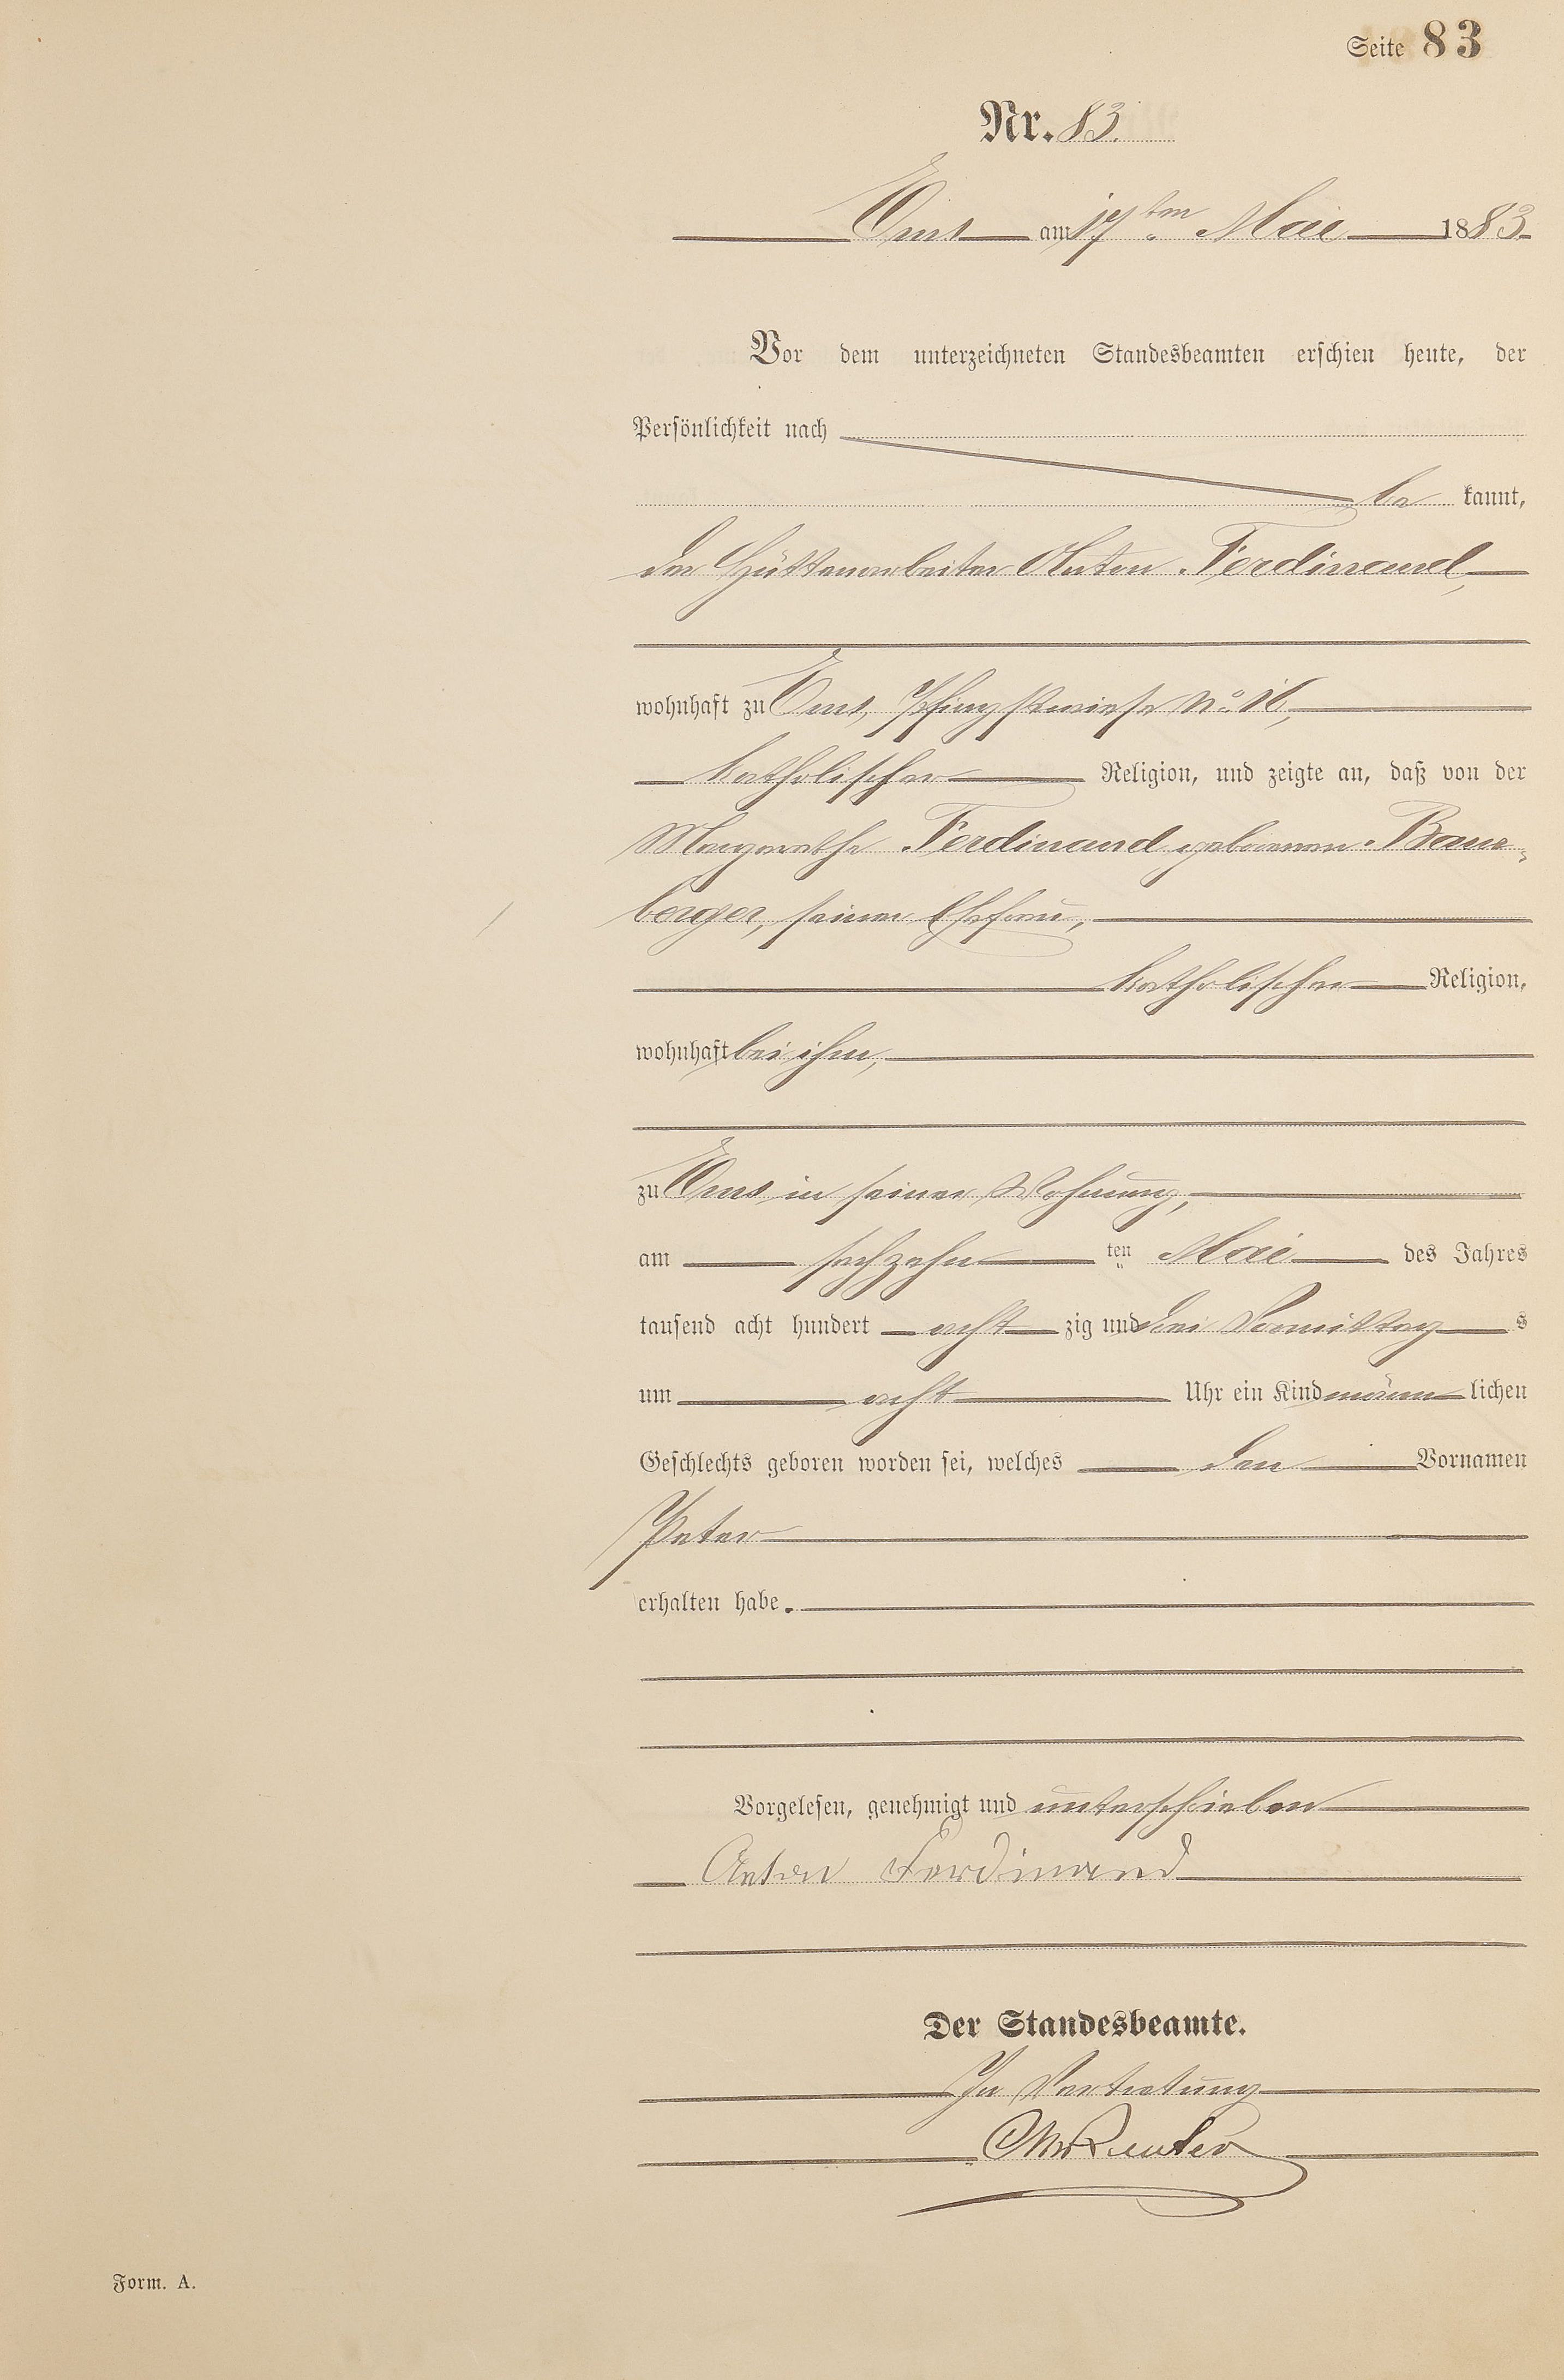 Seite 83
Nr. 83.
Ems am 17ten Mai 1883
Vor dem unterzeichneten Standesbeamten erschien heute, der
Persönlichkeit nach
be kannt,
der Hüttenarbeiter Anton Ferdinand,
wohnhaft zu Ems, Pfingstwiese No. 16,
katholischer Religion, und zeigte an, daß von der
Margarethe Ferdinand geborenen
berger, seiner Ehefrau,
katholischer Religion,
wohnhaft bei ihm,
zu Ems in seiner Wohnung,
am sechzehn ten Mai des Jahres
tausend acht hundert acht zig und drei Vormittag s
um acht Uhr ein Kind männ lichen
Geschlechts geboren worden sei, welches den Vornamen
Peter
erhalten habe.
Vorgelesen, genehmigt und unterschrieben
Anton Ferdinand
Der Standesbeamte.
In Vertretung
Form. A.